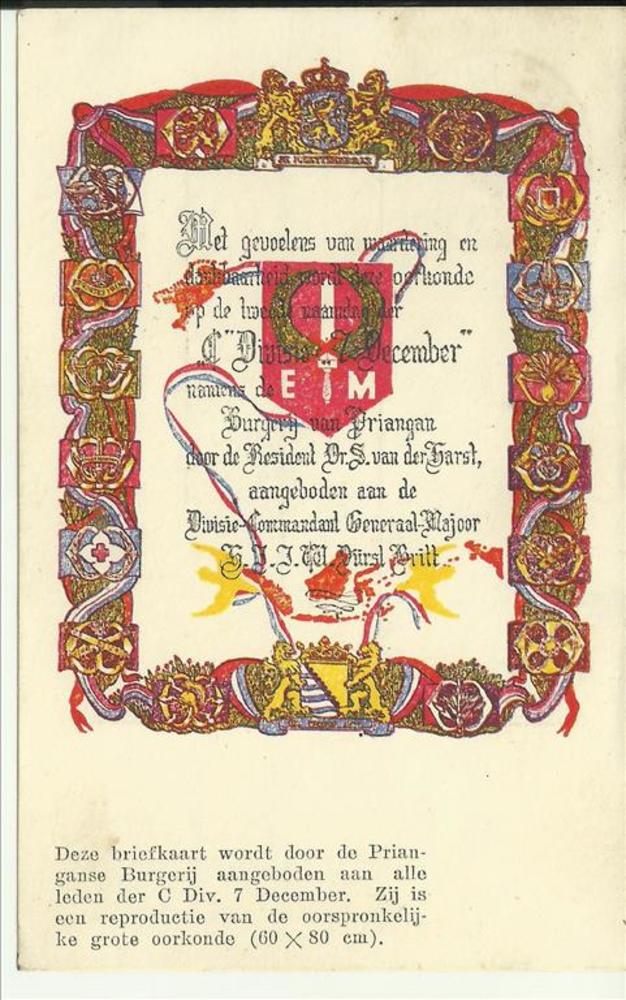 JE MAINTIENDRAI
Met gevoelens van waardering en
dankbaarheid wordt deze oorkonde
op de tweede naamdag der
„C" Divisie „7 December"
namens de
E M
Burgerij van Priangan
door de Resident Dr. S. van der Harst,
aangeboden aan de
Divisie-Commandant Generaal-Majoor
H. J. J. W. Dürst Britt
Deze briefkaart wordt door de Prian-
ganse Burgerij aangeboden aan alle
leden der C Div. 7 December. Zij is
een reproductie van de oorspronkelij-
ke grote oorkonde (60 × 80 cm).